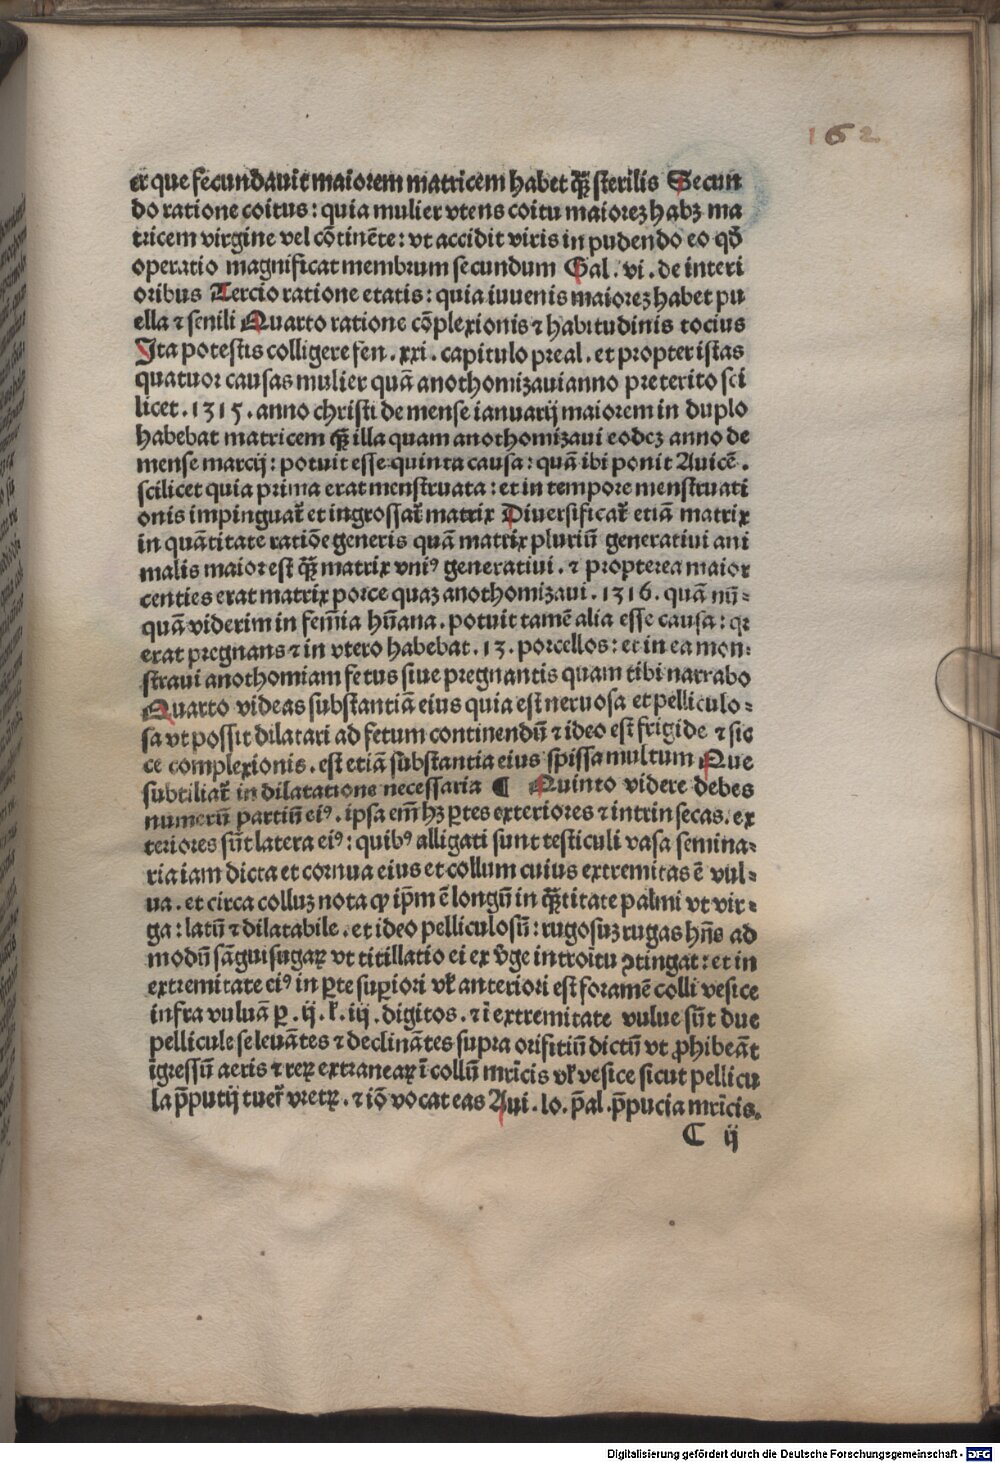 162
er que fecundauit maiorem matricem habet q̃ʒ sterilis Secun
do ratione coitus: quia mulier vtens coitu maioreʒ habʒ ma
tricem virgine vel cõtinẽte: vt accidit viris in pudendo eo qð
operatio magnificat membrum secundum Gal. vi. de interi
oribus Tercio ratione etatis: quia iuuenis maioreʒ habet pu
ella ⁊ senili Quarto ratione cõplexionis ⁊ habitudinis tocius
Ita potestis colligere fen. xxi. capitulo preal. et propter istas
quatuor causas mulier quã anothomizaui anno preterito sci
licet. 1315. anno christi de mense ianuarij maiorem in duplo
habebat matricem q̃ʒ illa quam anothomizaui eodeʒ anno de
mense marcij: potuit esse quinta causa: quã ibi ponit Auicẽ.
scilicet quia prima erat menstruata: et in tempore menstruati
onis impinguat̃ et ingrossat̃ matrix Diuersificat̃ etiã matrix
in quãtitate ratiõe generis quã matrix pluriũ generatiui ani
malis maior est q̃ʒ matrix vniꝰ generatiui. ⁊ propterea maior
centies erat matrix porce quaʒ anothomizaui. 1316. quã nũ-
quã viderim in femĩa hũana. potuit tamẽ alia esse causa: qꝛ
erat pregnans ⁊ in vtero habebat. 13. porcellos: et in ea mon-
straui anothomiam fetus siue pregnantis quam tibi narrabo
Quarto videas substantiã eius quia est neruosa et pelliculo-
sa vt possit dilatari ad fetum continendũ ⁊ ideo est frigide ⁊ sic
ce complexionis. est etiã substantia eius spissa multum Que
subtiliat̃ in dilatatione necessaria ¶ Quinto videre debes
numerũ partiũ eiꝰ. ipsa em̃ hʒ ꝑtes exteriores ⁊ intrinsecas. ex
teriores sũt latera eiꝰ: quibꝰ alligati sunt testiculi vasa semina-
ria iam dicta et cornua eius et collum cuius extremitas ẽ vul-
ua. et circa colluʒ nota ꝙ ip̃m ẽ longũ in q̃ʒtitate palmi vt vir-
ga: latũ ⁊ dilatabile. et ideo pelliculosũ: rugosuʒ rugas hñs ad
modũ sãguisugaꝝ vt titillatio ei ex ṽge introitu ꝯtingat: et in
extremitate eiꝰ in ꝑte sup̱iori vł anteriori est foramẽ colli vesice
infra vuluã ꝑ. ij. ł. iij. digitos. ⁊ ĩ extremitate vulue sũt due
pellicule se leuãtes ⁊ declinãtes supra orifitiũ dictũ vt ꝓhibeãt
ĩgressũ aeris ⁊ reꝝ extraneaꝝ ĩ collũ mr̃icis vł vesice sicut pellicu
la p̃putij tuet̃ vretꝝ. ⁊ iõ vocat eas Aui. lo. p̃al. p̃pucia mr̃icis.
C ij
Digitalisierung gefördert durch die Deutsche Forschungsgemeinschaft - DFG